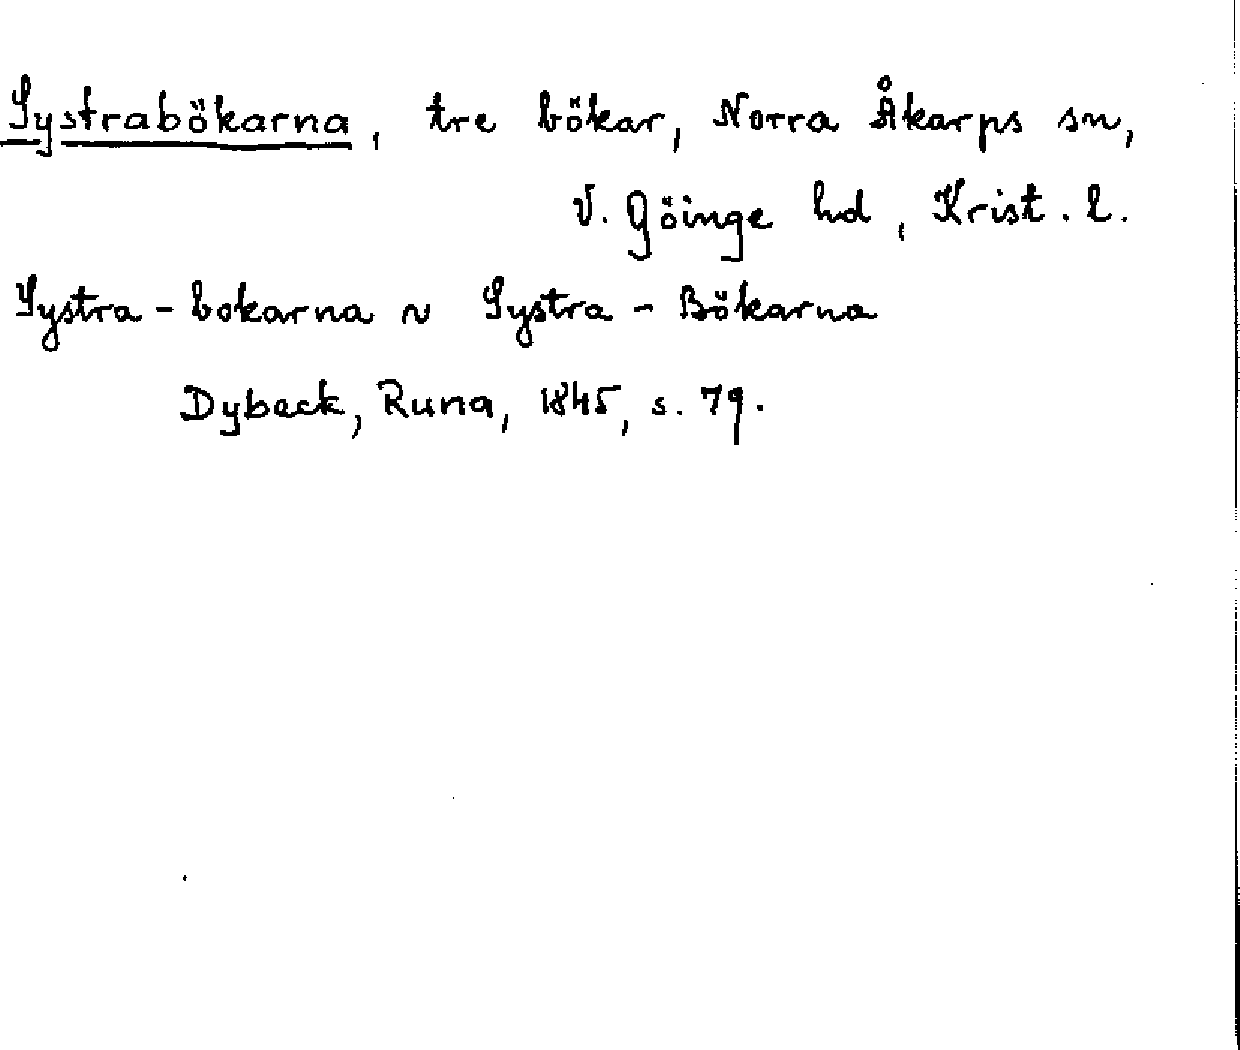 Systrabökarna, tre bökar, Norra Åkarps sn,
V. Göinge hd, Krist. l.
Systra-bokarna ~ Systra-Bökarna
Dybeck, Runa, 1845, s. 79.